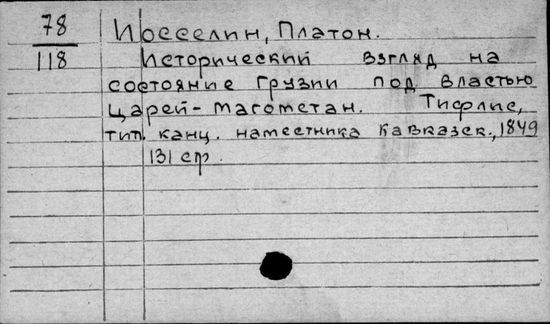 78 Иосселин, Платон.
118 Исторический взгляд на
состояние Грузии под властью
царей-магометан. Тифлис,
тип. канц. наместника Кавказск., 1849
131 стр.